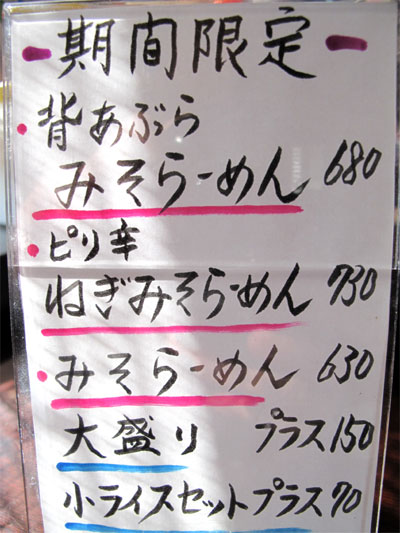 - 期間限定 -
・背あぶら
みそらーめん 680
・ピリ辛
ねぎみそらーめん 730
・みそらーめん 630
大盛り プラス150
小ライスセットプラス70